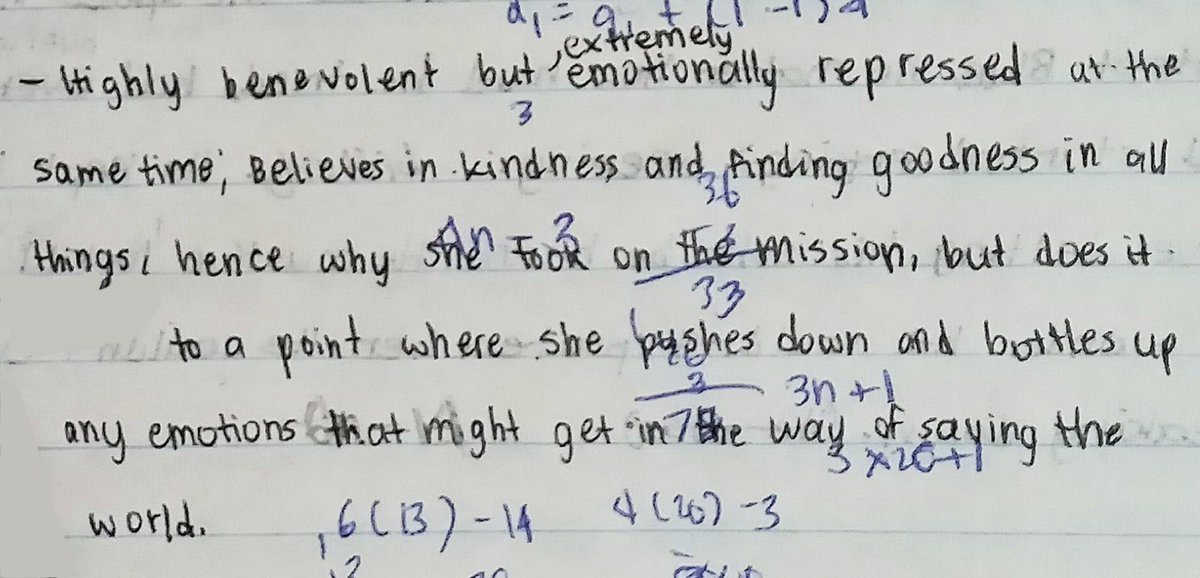 extremely
- Highly benevolent but, emotionally repressed at the
3
same time; Believes in kindness and finding goodness in all
36
things, hence why she took on the mission, but does it
33
to a point where she pushes down and bottles up
3n+1
any emotions that might get in the way of saying the
3×20+1
world. 6(13)-14 4(20)-3